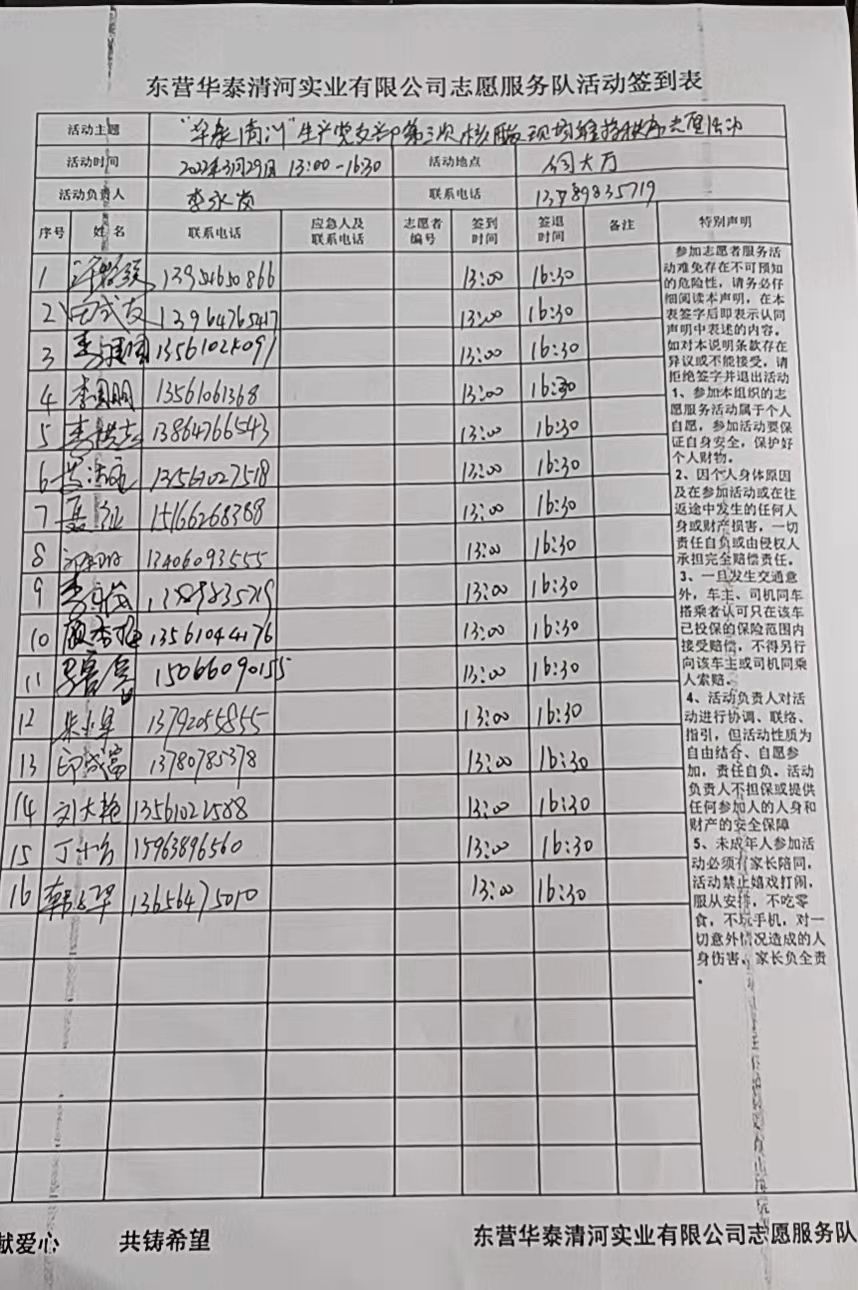 东营华泰清河实业有限公司志愿服务队活动签到表
活动主题 "华泰清河"生产党支部第三次核酸现场维持秩序志愿活动
活动时间 2022年3月29日 13:00-16:30 活动地点 大厅
活动负责人 李永茂 联系电话 13789835719
序号 姓名 联系电话 应急人及联系电话 志愿者编号 签到时间 签退时间 备注 特别声明
1 13954650866 13:00 16:30
2 13964765417 13:00 16:30
3 13:00 16:30
4 李国明 13561061368 13:00 16:30
5 13864766543 13:00 16:30
6 13:00 16:30
7 15166268388 13:00 16:30
8 13406093555 13:00 16:30
9 李永茂 13789835719 13:00 16:30
10 颜秀梅 13561044176 13:00 16:30
11 15066090155 13:00 16:30
12 13792055855 13:00 16:30
13 印成富 13780785378 13:00 16:30
14 刘大艳 13561021588 13:00 16:30
15 15963896560 13:00 16:30
16 13656475010 13:00 16:30
参加志愿者服务活
动难免存在不可预知
的危险性,请务必仔
细阅读本声明,在本
表签字后即表示认同
声明中表述的内容。
如对本说明条款存在
异议或不能接受,请
拒绝签字并退出活动
1、参加本组织的志
愿服务活动属于个人
自愿,参加活动要保
证自身安全,保护好
个人财物。
2、因个人身体原因
及在参加活动或在往
返途中发生的任何人
身或财产损害,一切
责任自负或由侵权人
承担完全赔偿责任。
3、一旦发生交通意
外,车主、司机同车
搭乘者认可只在该车
已投保的保险范围内
接受赔偿,不得另行
向该车主或司机同乘
人索赔。
4、活动负责人对活
动进行协调、联络、
指引,但活动性质为
自由结合、自愿参
加,责任自负。活动
负责人不担保或提供
任何参加人的人身和
财产的安全保障
5、未成年人参加活
动必须有家长陪同,
活动禁止嬉戏打闹,
服从安排,不吃零
食,不玩手机,对一
切意外情况造成的人
身伤害,家长负全责
。
献爱心 共铸希望 东营华泰清河实业有限公司志愿服务队